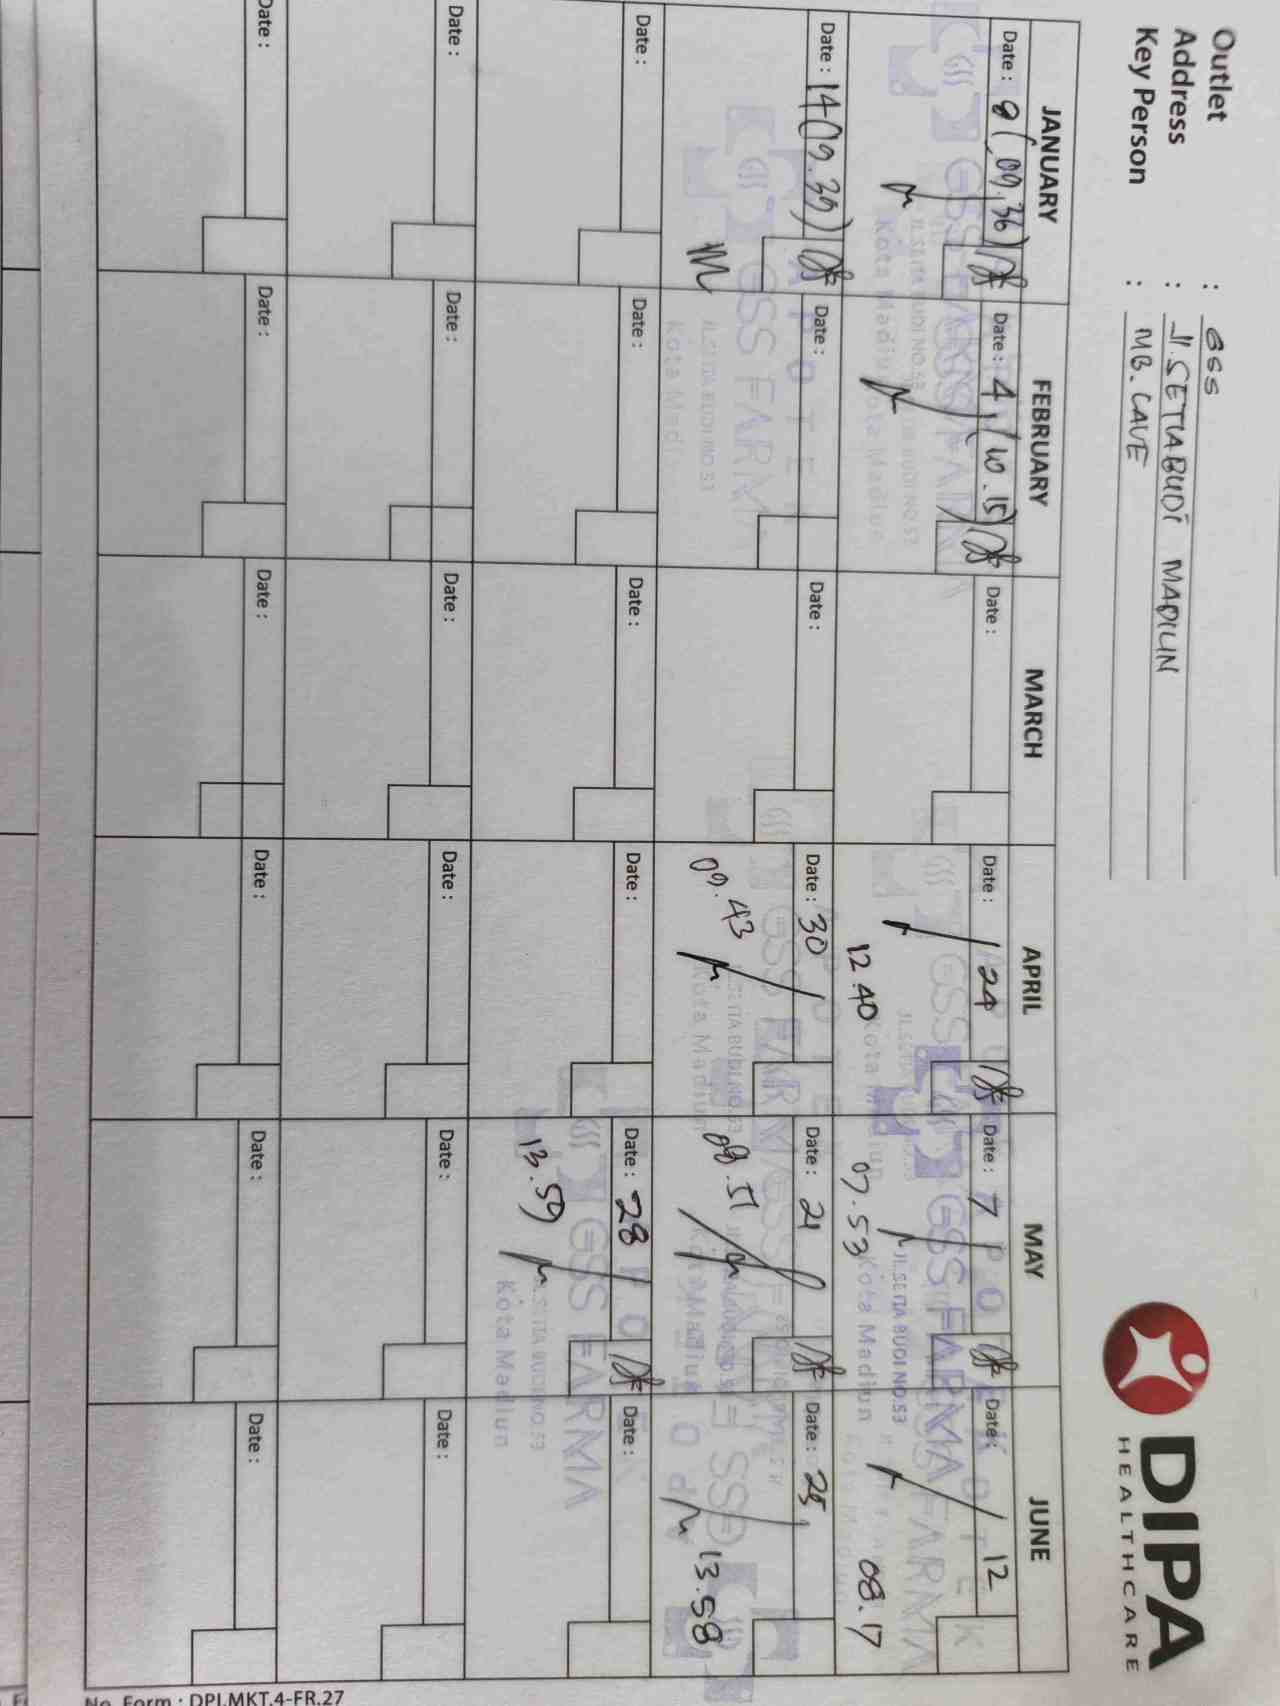 Outlet : GSS
Address : Jl. SETIABUDI MADIUN
Key Person : MB. CAVE
DIPA
HEALTHCARE
JANUARY FEBRUARY MARCH APRIL MAY JUNE
Date : 8 (09.36) Date : 4, (10.15) Date : Date : 24 Date : 7 Date : 12
12.40 07.53 08.17
GSS FARMA
JL.SETIA BUDI NO.53
Kota Madiun
Date : 14 (13.39) Date : Date : Date : 30 Date : 21 Date : 25
09.43 08.51 13.58
GSS FARMA
JL.SETIA BUDI NO.53
Kota Madiun
Date : Date : Date : Date : Date : 28 Date :
13.59
GSS FARMA
JL.SETIA BUDI NO.53
Kota Madiun
Date : Date : Date : Date : Date : Date :
Date : Date : Date : Date : Date : Date :
No. Form : DPI.MKT.4-FR.27